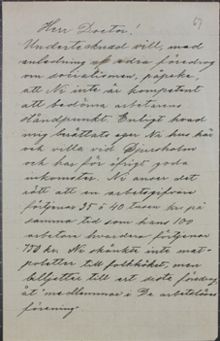 69
Herr Doctor!
Undertecknad vill, med
anledning af edra föredrag
om socialismen, påpeka
att Ni inte är kompetent
att bedöma arbetarens
ståndpunkt. Enligt hvad
mig berättats eger Ni hus här
och villa vid Djursholm
och har för öfrigt goda
inkomster. Ni anser det
rätt att en arbetsgifvare
förtjenar 35 à 40 tusen kr på
samma tid som hans 100
arbetare hvardera förtjenar
750 kr. Ni skänkte inte mat-
poletter till folkköket, men
billjetter till ert sista föredrag
åt medlemmar i De arbetslösas
förening.